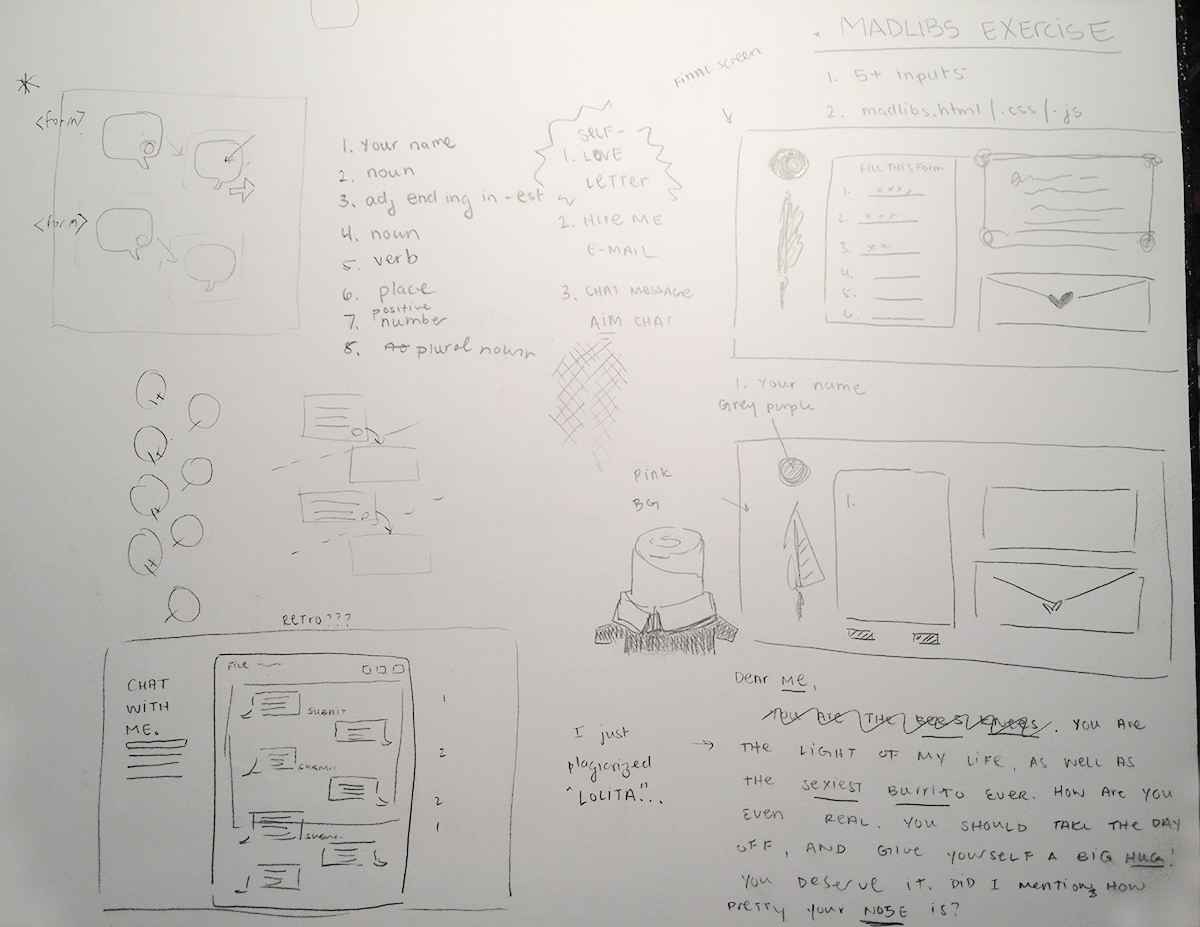 MADLIBS EXERCISE
1. 5+ inputs
2. madlibs.html / .css / .js
FINAL SCREEN
<form>
<form>
1. Your name
2. noun
3. adj ending in -est
4. noun
5. verb
6. place
positive
7. number
8. plural noun
SELF-
1. LOVE
LETTER
2. Hire ME
E-MAIL
3. CHAT MESSAGE
AIM CHAT
FILL THIS FORM
1. xxx
2. xxx
3. xx
4.
5.
6.
1. Your name
Grey purple
1.
PINK
BG
RETRO???
CHAT
WITH
ME.
FILE
SUBMIT
SUBMIT
SUBMIT
1
2
2
1
I just
plagiarized
"LOLITA"...
Dear ME,
YOU ARE THE BEES KNEES. YOU ARE
THE LIGHT OF MY LIFE, AS WELL AS
THE SEXIEST BURRITO EVER. HOW ARE YOU
EVEN REAL. YOU SHOULD TAKE THE DAY
OFF, AND GIVE YOURSELF A BIG HUG!
YOU DESERVE IT. DID I MENTION HOW
PRETTY YOUR NOSE IS?